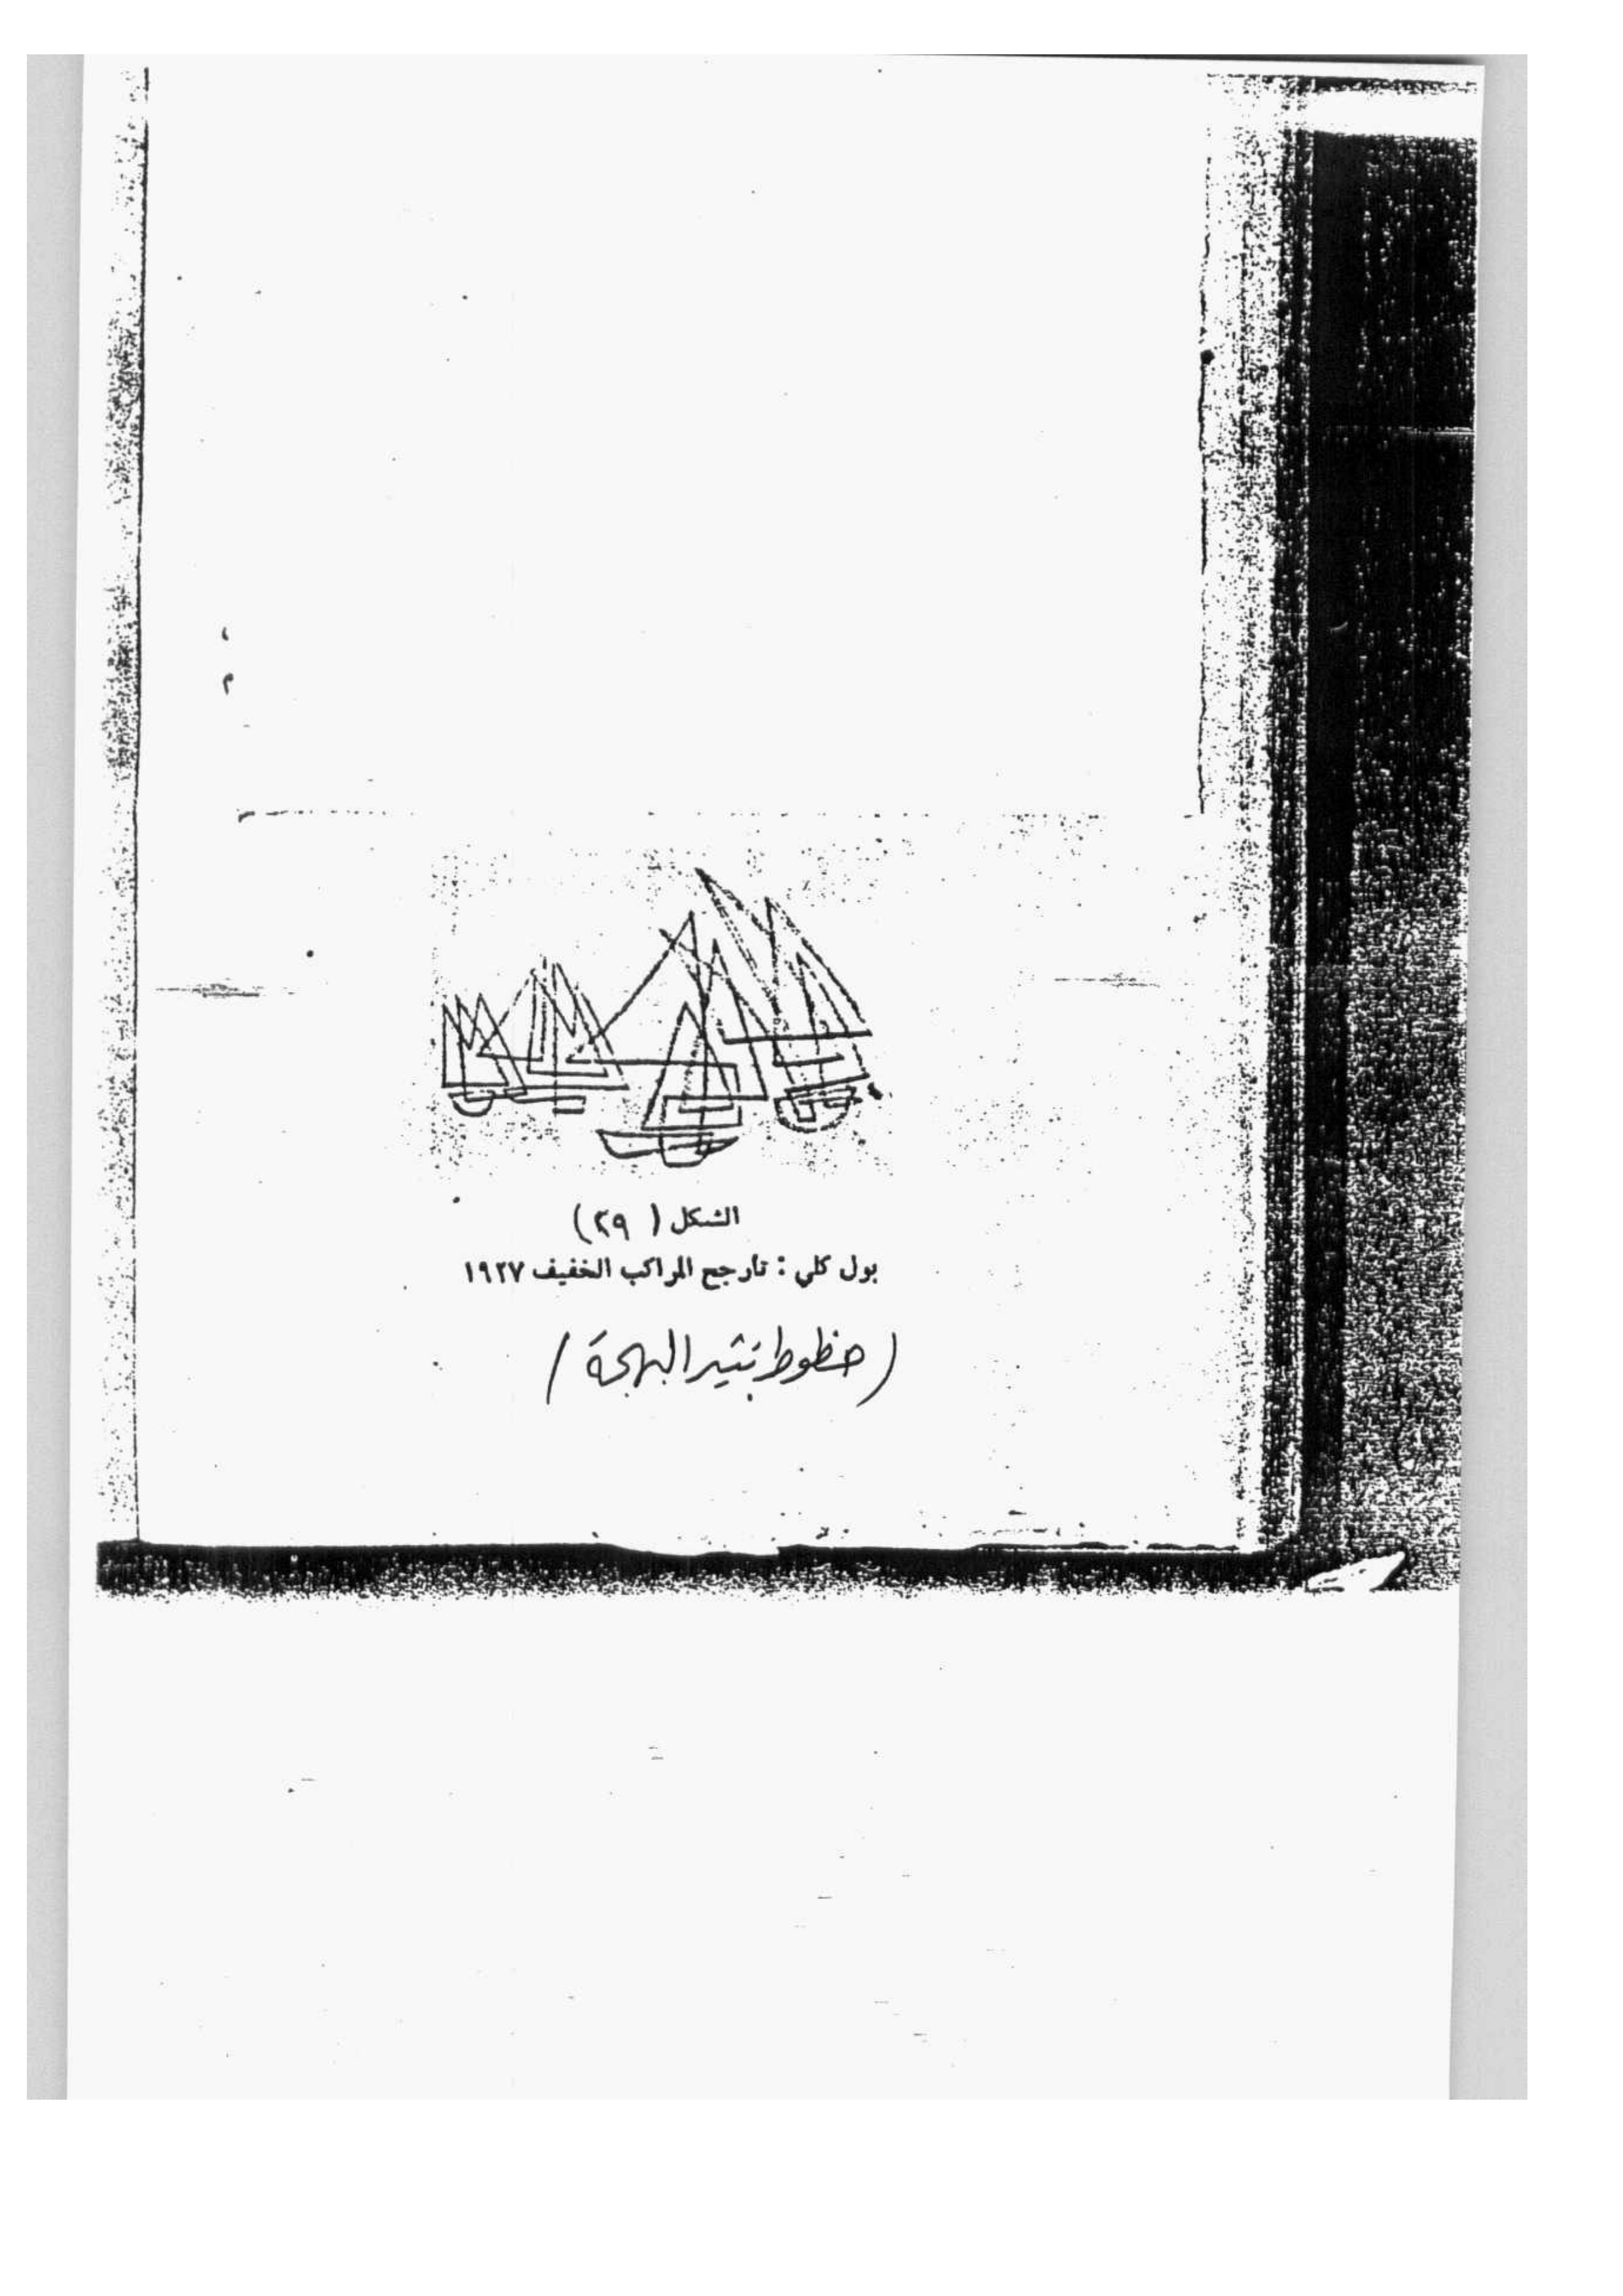 الشكل ( ٢٩ )
بول كلي : تارجح المراكب الخفيف ١٩٢٧
( خطوط تثير البهجة )